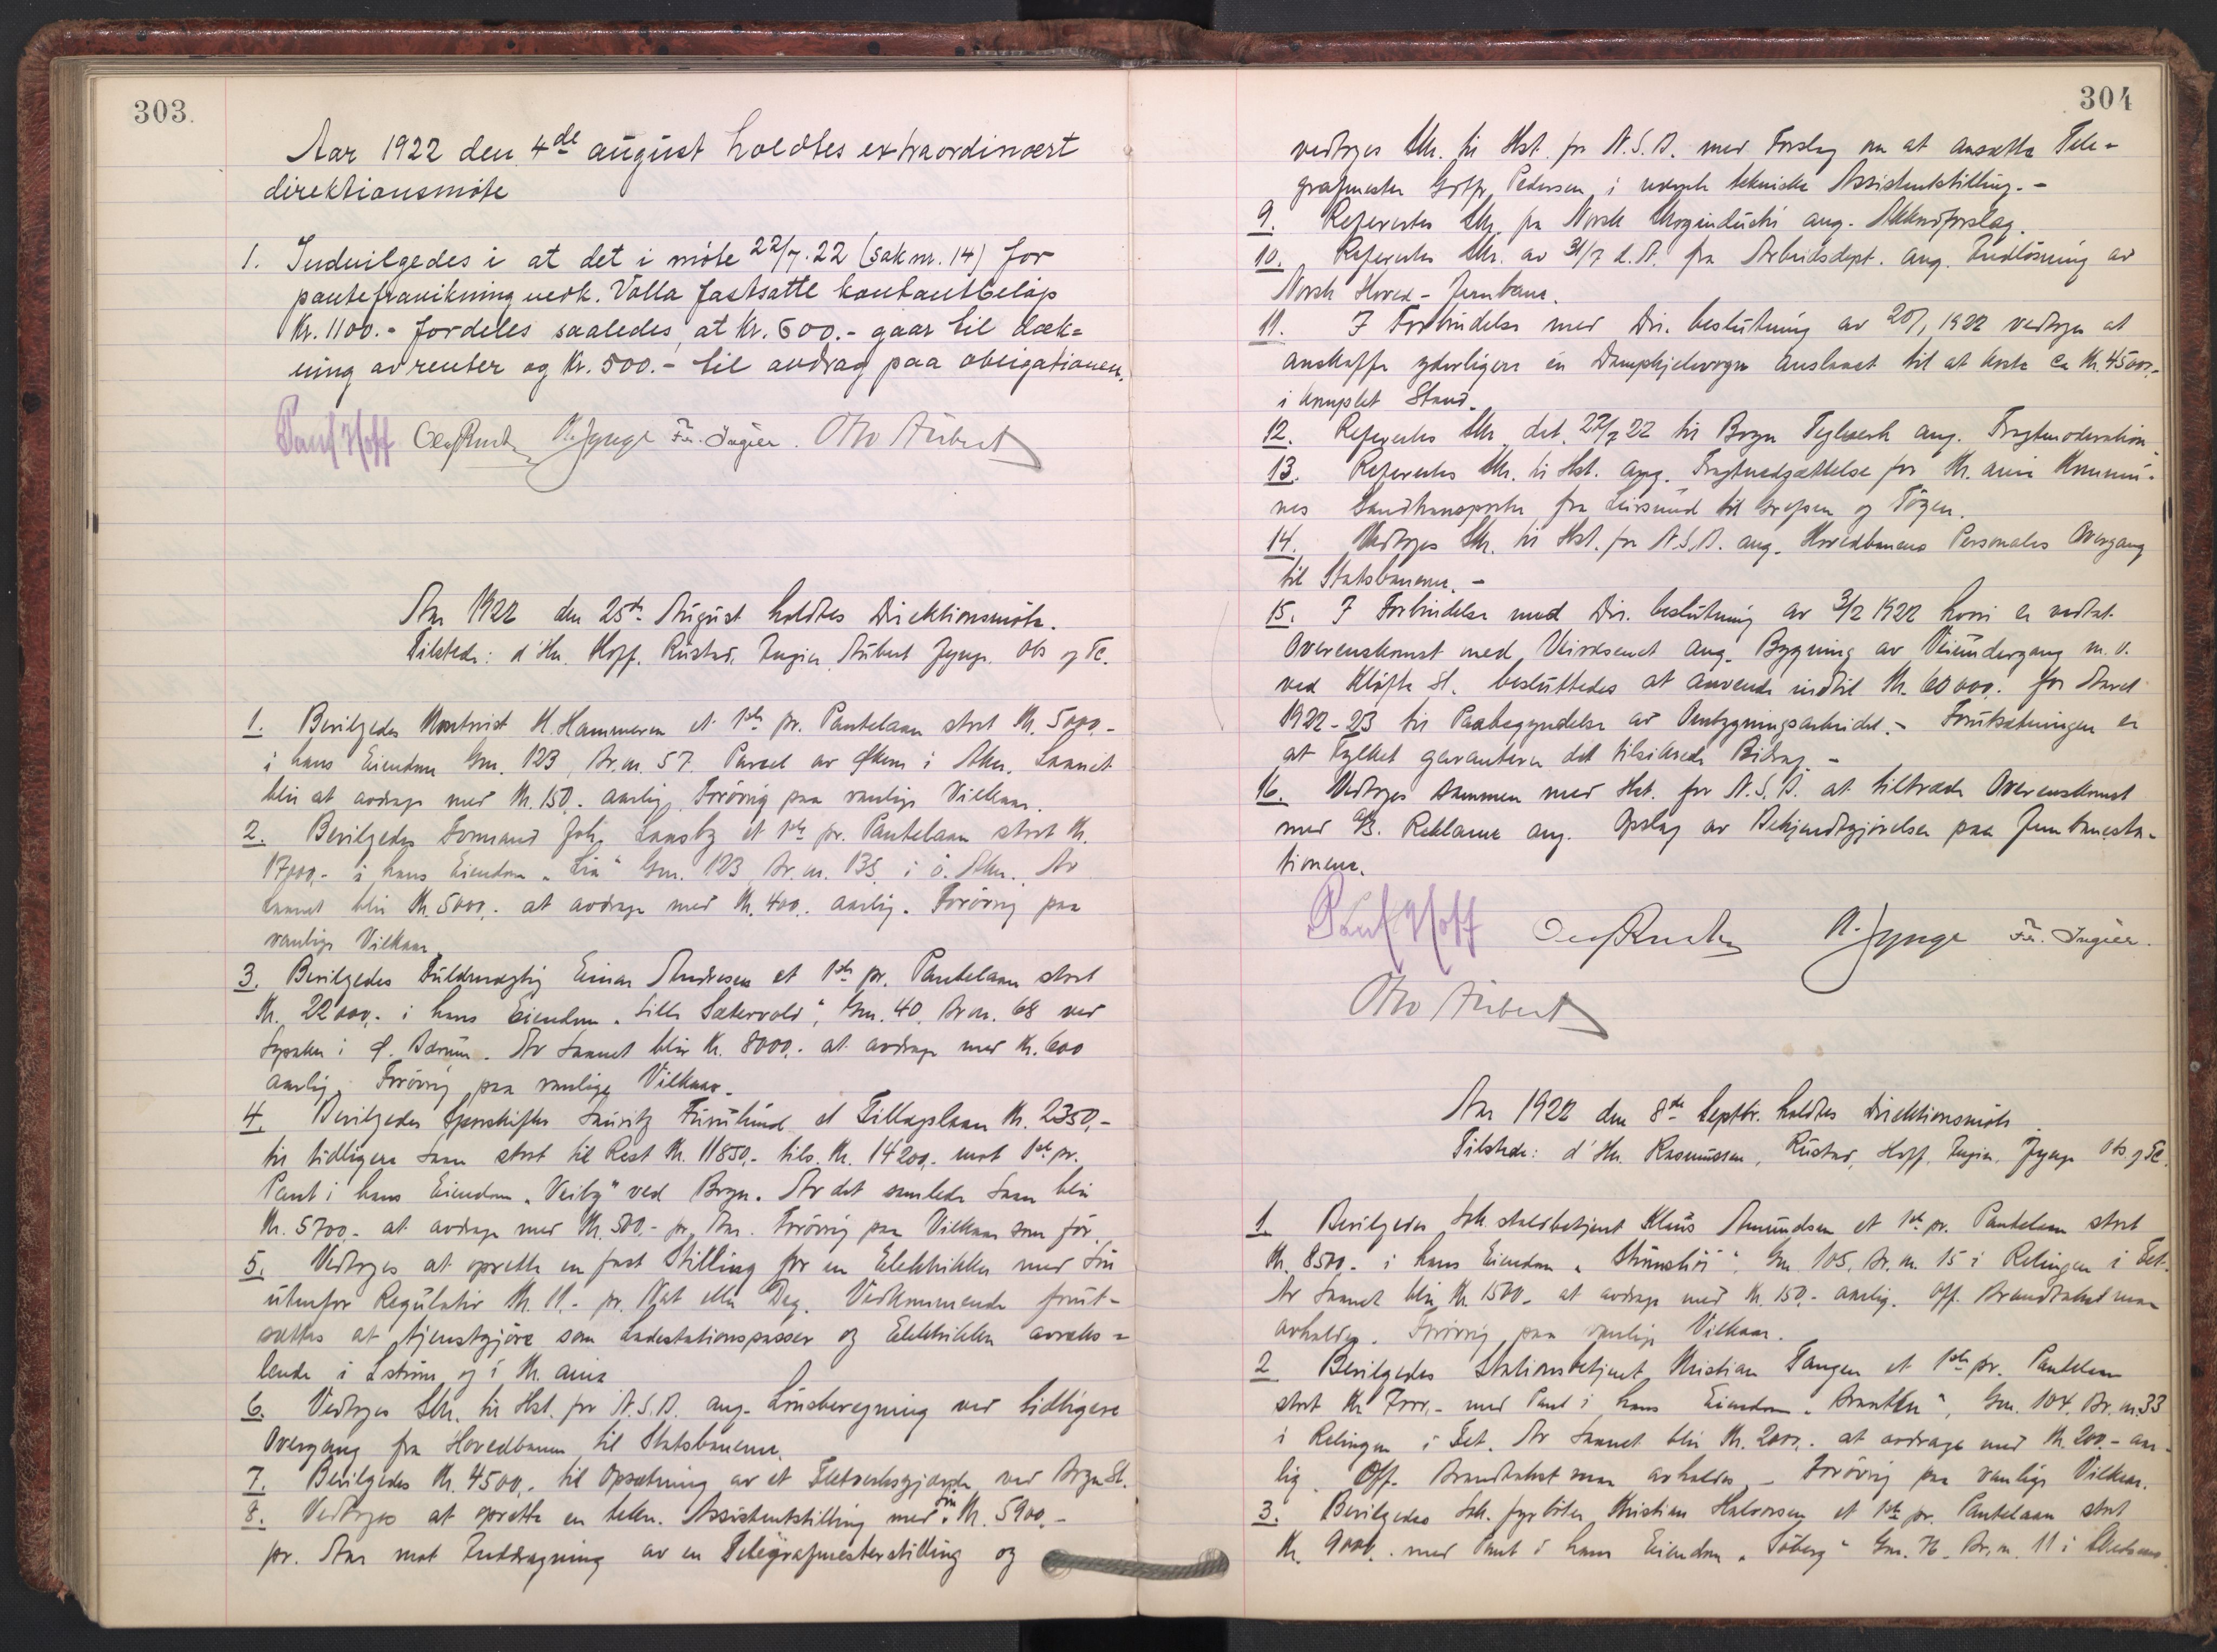 303.
Aar 1922 den 4de august holdtes extraordinært
direktionsmöte
1. Indvilgedes i at det i möte 22/7.22 (sak nr. 14) for
pantefravikning vedk. Volla fastsatte kontantbelöp
Kr. 1100.- fordeles saaledes, at Kr. 600.- gaar til dæk-
ning av renter og Kr. 500.- til avdrag paa obligationen.
Paul Hoff Olaf Rustad N. Jynge Fr. Ingier. Otto Aubert
Aar 1922 den 25de August holdtes Direktionsmöte.
Tilstede: d'Hrr. Hoff, Rustad, Ingier, Aubert Jynge Obs og Sc.
1. Bevilgedes Kontorist H. Hammeren et 1ste pr. Pantelaan stort Kr. 5000.-
i hans Eiendom Gnr. 123, Br. nr. 57. Parcel av Økern i Aker. Laanet
blir at avdrage med Kr. 150.- aarlig. Forövrig paa vanlige Vilkaar.
2. Bevilgedes Formand Joh. Lansby et 1ste pr. Pantelaan stort Kr.
17000,- i hans Eiendom "Lia" Gnr. 123 Br. nr. 135 i ö. Aker. Av
Laanet blir Kr. 5000.- at avdrage med Kr. 400.- aarlig. Forövrig paa
vanlige Vilkaar.
3. Bevilgedes Fuldmægtig Einar Andresen et 1ste pr. Pantelaan stort
Kr. 22000.- i hans Eiendom "Lille Sætervold", Gnr. 40, Br. nr. 68 ved
Lysaker i Ø. Bærum. Av Laanet blir Kr. 8000.- at avdrage med Kr. 600
aarlig. Forövrig paa vanlige Vilkaar.
4. Bevilgedes Sporskifter Lauritz Furulund et Tillægslaan Kr. 2350.-
til tidligere Laan stort til Rest Kr. 11850.- tils. Kr. 14200.- mot 1ste pr.
Pant i hans Eiendom "Veiby" ved Bryn. Av det samlede Laan blir
Kr. 5700.- at avdrage med Kr. 500.- pr. Aar. Forövrig paa Vilkaar som för.
5. Vedtoges at oprette en fast Stilling for en Elektriker med Lön
utenfor Regulativ Kr. 11.- pr. Nat eller Dag. Vedkommende forut-
sættes at tjenestgjöre som Ladestationspasser og Elektriker avveks-
lende i Lström og i Kr.ania
6. Vedtoges Skr. til Hst. for N.S.B. ang. Lönsberegning ved tidligere
Overgang fra Hovedbanen til Statsbanerne.
7. Bevilgedes Kr. 4500.- til Opsætning av et Fletverksgjærde ved Bryn St.
8. Vedtoges at oprette en tekn. Assistentstilling med Lön Kr. 5900.-
pr. Aar mot Inddragning av en Telegrafmesterstilling og
304
vedtoges Skr. til Hst. for N.S.B. med Forslag om at ansætte Tele-
grafmester Gotfr. Pedersen i nævnte tekniske Assistentstilling.-
9. Refereertes Skr. fra Norsk Skogindustri ang. Akkordforslag.
10. Refereertes Skr. av 31/7 d. A. fra Arbeidsdept. ang. Indlösning av
Norsk Hoved-Jernbane.
11. I Forbindelse med Dir. beslutning av 20/1 1922 vedtoges at
anskaffe yderligere én Dampkjelevogn anslaaet til at koste ca Kr. 4500.-
i komplet Stand.
12. Refereertes Skr. dat. 22/7 22 til Bryn Teglverk ang. Fragtmoderation
13. Refereertes Skr. til Hst. ang. Fragtnedsættelse for Kr.ania Kommu-
nes Sandtransporter fra Leirsund til Grefsen og Töyen.
14. Vedtoges Skr. til Hst. for N.S.B. ang. Hovedbanens Personales Overgang
til Statsbanerne.-
15. I Forbindelse med Dir. beslutning av 3/2 1922 hvori er vedtat
Overenskomst med Veivæsenet ang. Bygning av Veiundergang m. v.
ved Kløfta St. besluttedes at anvende indtil Kr. 60000.- for Aaret
1922-23 til Paabegyndelse av Ombygningsarbeidet.- Forutsætningen er
at Fylket garanterer det tilsikrede Bidrag.-
16. Vedtoges sammen med Hst. for N.S.B. at tiltræde Overenskomst
med A/S. Reklame ang. Opslag av Bekjendtgjörelser paa Jernbanesta-
tionene.
Paul Hoff Olaf Rustad N. Jynge Fr. Ingier.
Otto Aubert
Aar 1922 den 8de Septbr. holdtes Direktionsmöte
Tilstede: d'Hrr. Rasmussen, Rustad, Hoff, Ingier, Jynge Obs og Sc.
1. Bevilgedes Lok. staldbetjent Klaus Amundsen et 1ste pr. Pantelaan stort
Kr. 8500.- i hans Eiendom Gnr. 105, Br. nr. 15 i Relingen i Fet.
Av Laanet blir Kr. 1500.- at avdrage med Kr. 150.- aarlig. Off. Brandtakst maa
avholdes. Forövrig paa vanlige Vilkaar.
2. Bevilgedes Stationsbetjent Kristian Tangen et 1ste pr. Pantelaan
stort Kr. 7000.- med Pant i hans Eiendom Gnr. 104, Br. nr. 33
i Relingen i Fet. Av Laanet blir Kr. 2000.- at avdrage med Kr. 200.- aar-
lig. Off. Brandtakst maa avholdes.- Forövrig paa vanlige Vilkaar.
3. Bevilgedes Lok. fyrböter Kristian Halvorsen et 1ste pr. Pantelaan stort
Kr. 9000.- med Pant i hans Eiendom "Söberg" Gnr. 76, Br. nr. 11 i Skedsmo